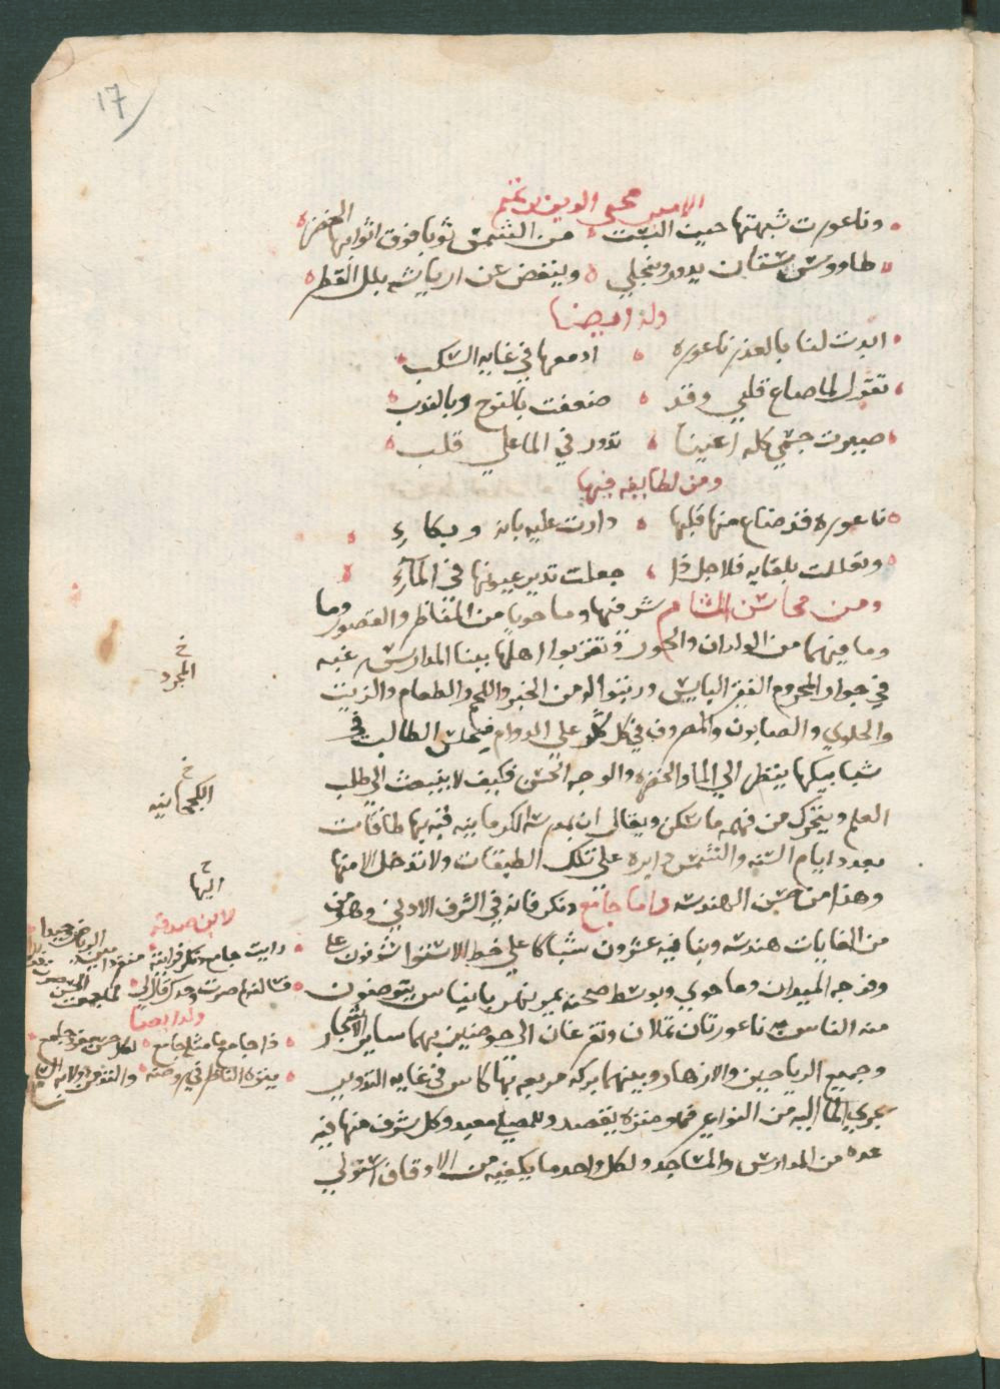 17
الامير محيي الدين بن تميم
وناعورت شبهتها حين البست من الشمس ثوبا فوق اثوابها الخضر
طاووس بستان يدور وينجلي وينفض عن ارياشه بلل القطر
وله ايضا
ابدت لنا بالعذر ناعوره ادمعها في غايه السكب
تقول لما ضاع قلبي وقد ضعفت بالنوح وبالندب
صيرت جسمي كله اعينا تدور في الما علي قلب
ومن لطايفه فيها
ناعوره قد ضاع منها قلبها دارت عليه بانه وبكاءِ
وتعللت بلقايه فلاجل ذا جعلت تدير عيونها في الماءِ
ومن محاسن الشام شرفنها وما حويا من المناظر والقصور وما
وما فيهما من الولدان والحور وتقربوا اهلها ببنا المدارس رغبه
في جوار المحروم الفقير البايس ورتبوا له من الخبز واللحم والطعام والزيت
والحلوي والصابون والمصروف في كل علي الدوام فيجلس الطالب في
شبابيكها ينظر الي الما والخضره والوجه الحسن فكيف لا ينبعث الي طلب
العلم ويتحرك من فهمه ما سكن ويقال ان بمدرسه الكرمانيه قبه بها طاقات
بعدد ايام السنه والشمس دايره علي تلك الطبقات ولا تدخل الا منها
وهذا من حسن الهندسه واما جامع دنكز فانه في الشرف الادني وهو من
من الغايات هندسه وبنا فيه عشرون شباكا علي خط الاستوا شرفون علي
وفرجه الميدان وما حوي وبوسط صحنه يمر نهر بانياس يتوضون
منه الناس به ناعورتان تملان وتفرغان الي حوضين بهما ساير الاشجار
وجميع الرياحين والازهار وبينهما بركه مربعه بها كاس في غايه التدوير
يجري الما اليه من النواعير فهو منتزه يقصد وللمصلي معبد وكل شرف منها فيه
عده من المدارس والمساجد ولكل واحد ما يكفيه من الاوقاف استولي
خ
المجرد
خ
الكججانيه
اليها
لابن صدقه
رايت جامع دنكز
ولد ايضا
ذا جامع ما مثله جامع
ينزه الناظر في روضه